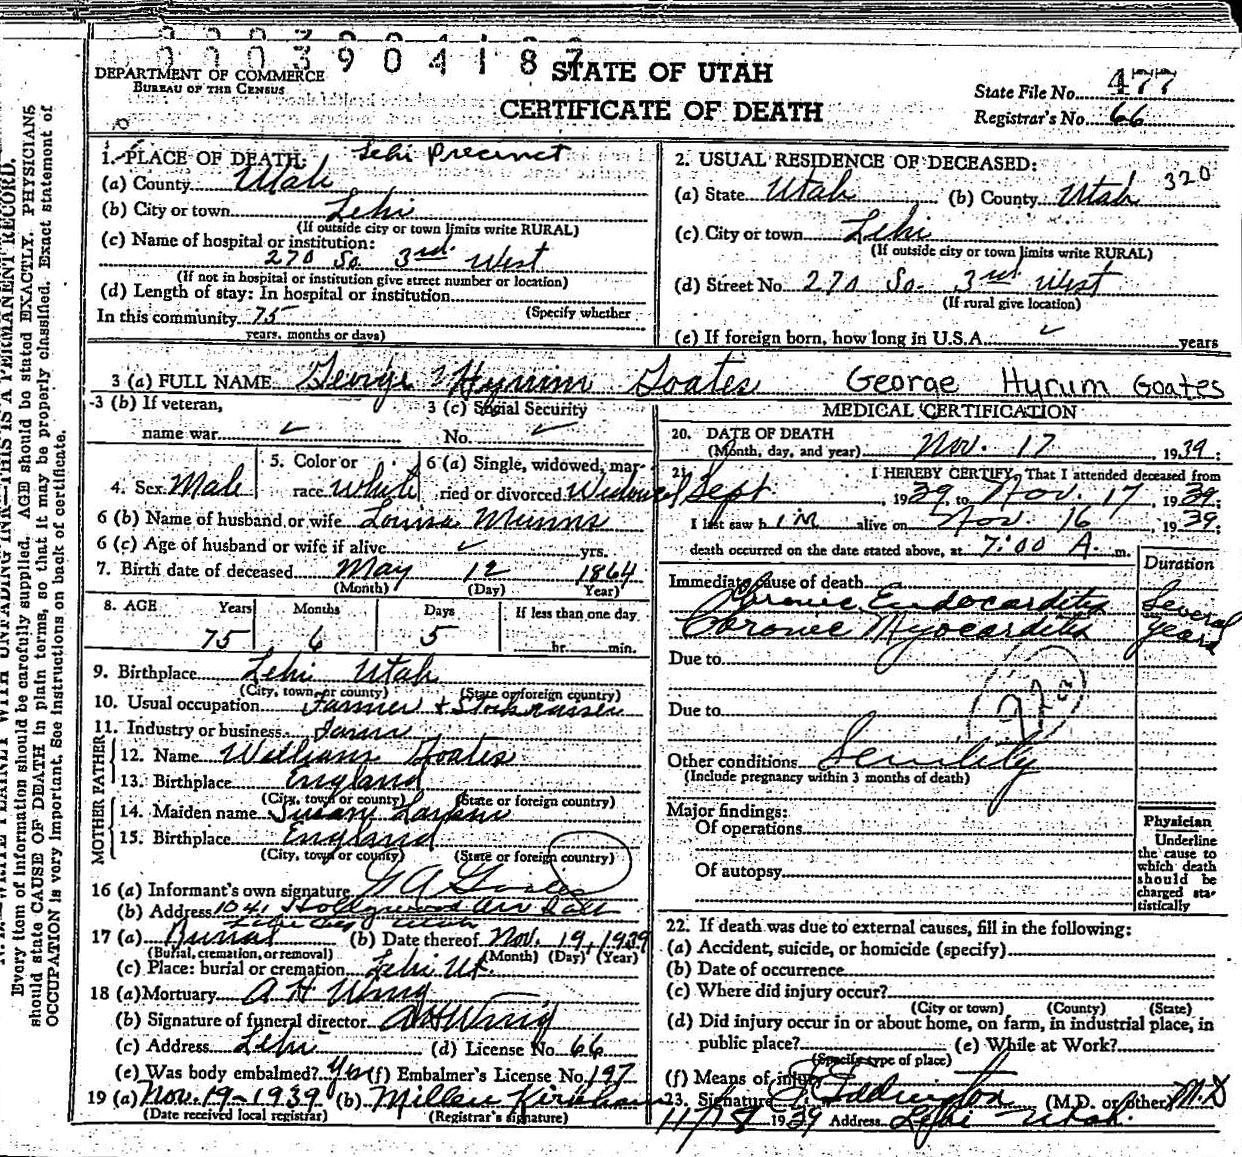 0003904187
DEPARTMENT OF COMMERCE
BUREAU OF THE CENSUS
STATE OF UTAH
CERTIFICATE OF DEATH
State File No. 477
Registrar's No. 66
Every item of information should be carefully supplied. AGE should be stated EXACTLY. PHYSICIANS
should state CAUSE OF DEATH in plain terms, so that it may be properly classified. Exact statement of
OCCUPATION is very important. See instructions on back of certificate.
1. PLACE OF DEATH: Lehi Precinct
(a) County Utah
(b) City or town Lehi
(If outside city or town limits write RURAL)
(c) Name of hospital or institution:
270 So. 3rd West
(If not in hospital or institution give street number or location)
(d) Length of stay: In hospital or institution
In this community 75 (Specify whether
years, months or days)
2. USUAL RESIDENCE OF DECEASED: 320
(a) State Utah (b) County Utah
(c) City or town Lehi
(If outside city or town limits write RURAL)
(d) Street No. 270 So. 3rd West
(If rural give location)
(e) If foreign born, how long in U.S.A. ✓ years
3 (a) FULL NAME George Hyrum Goates George Hyrum Goates
3 (b) If veteran,
name war ✓
3 (c) Social Security
No. ✓
4. Sex Male
5. Color or
race White
6 (a) Single, widowed, mar-
ried or divorced Widowed
6 (b) Name of husband or wife Louisa Munns
6 (c) Age of husband or wife if alive ✓ yrs.
7. Birth date of deceased May 12 1864
(Month) (Day) Year)
8. AGE Years Months Days If less than one day
75 6 5 hr. min.
9. Birthplace Lehi Utah
(City, town, or county) (State or foreign country)
10. Usual occupation Farmer +
11. Industry or business Farm
FATHER
12. Name William Goates
13. Birthplace England
(City, town or county) (State or foreign country)
MOTHER
14. Maiden name Susan
15. Birthplace England
(City, town or county) (State or foreign country)
16 (a) Informant's own signature G A Goates
(b) Address 1041 Hollywood Ave Salt
Lake City Utah
17 (a) Burial (b) Date thereof Nov. 19, 1939
(Burial, cremation, or removal) (Month) (Day) (Year)
(c) Place: burial or cremation Lehi Ut.
18 (a) Mortuary A H Wing
(b) Signature of funeral director A H Wing
(c) Address Lehi (d) License No. 66
(e) Was body embalmed? Yes (f) Embalmer's License No. 197
19 (a) Nov. 19-1939 (b) Kirkham
(Date received local registrar) (Registrar's signature)
MEDICAL CERTIFICATION
20. DATE OF DEATH
(Month, day, and year) Nov. 17, 1939;
21. I HEREBY CERTIFY, That I attended deceased from
Sept, 1939 to Nov. 17, 1939;
I last saw him alive on Nov. 16, 1939;
death occurred on the date stated above, at 7:00 A. m.
Duration
Immediate cause of death
Chronic Endocarditis Several
Chronic Myocarditis years
Due to
Due to
Other conditions Senility
(Include pregnancy within 3 months of death)
Major findings:
Of operations
Of autopsy
Physician
Underline
the cause to
which death
should be
charged sta-
tistically
22. If death was due to external causes, fill in the following:
(a) Accident, suicide, or homicide (specify)
(b) Date of occurrence
(c) Where did injury occur?
(City or town) (County) (State)
(d) Did injury occur in or about home, on farm, in industrial place, in
public place? (e) While at Work?
(Specify type of place)
(f) Means of injury
23. Signature Eddington (M.D. or other) M.D
11/18 1939 Address Lehi Utah.